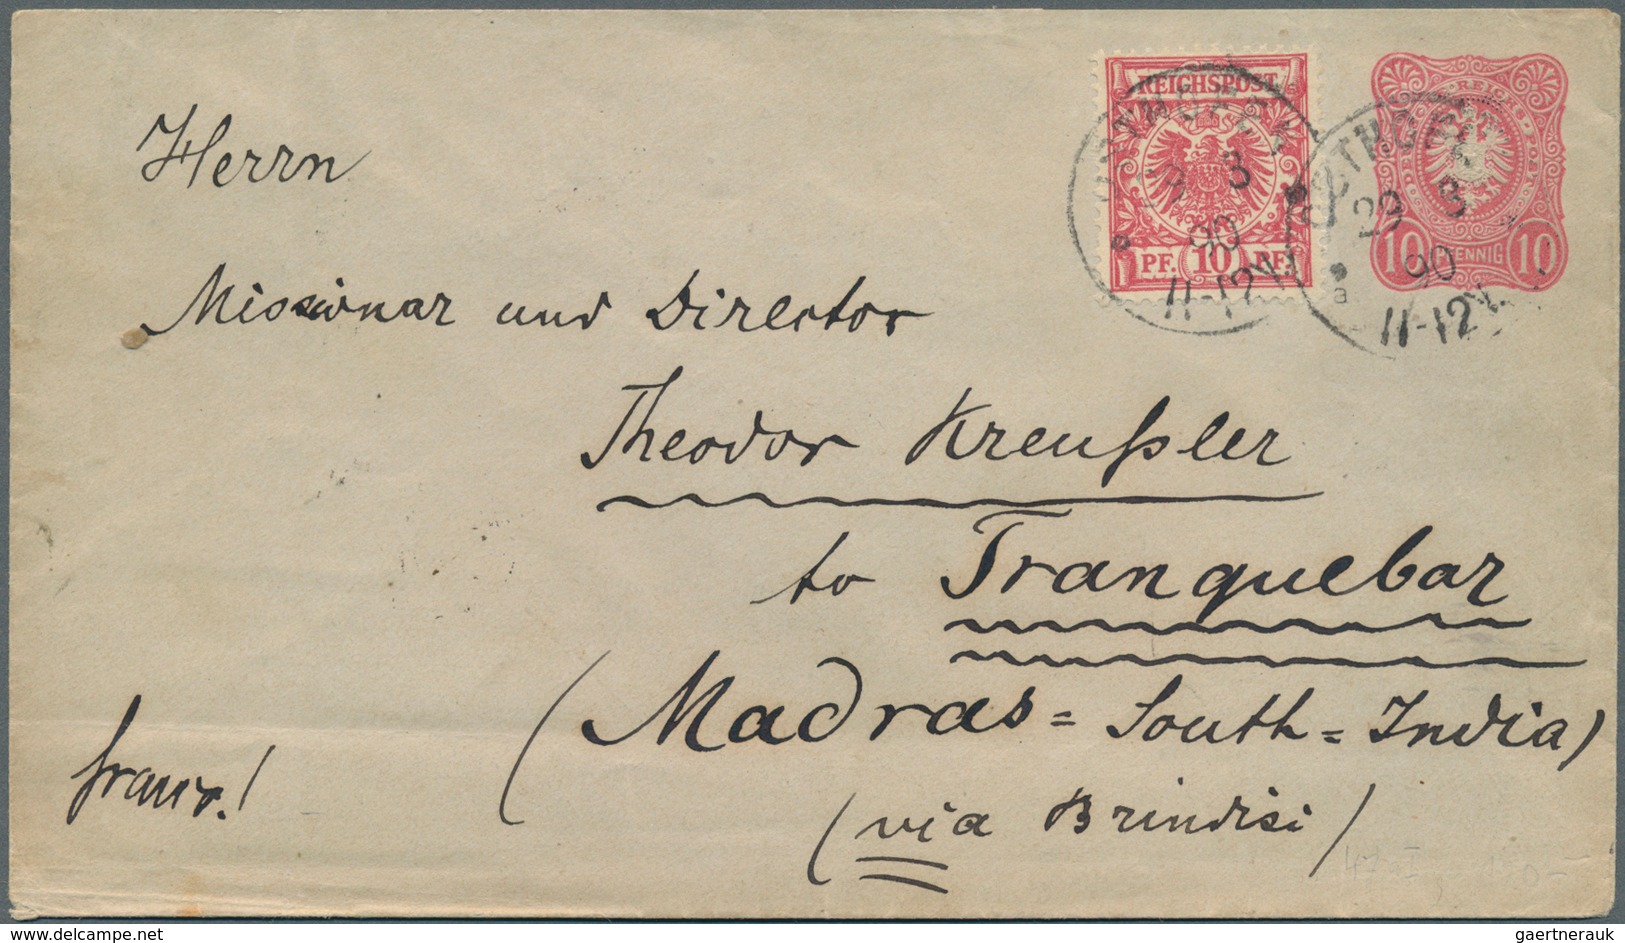 REICHSPOST
PF. 10 PF.
10 PFENNIG 10
29 3
90
11-12V.
Herrn
Missionar und Director
Theodor Kreußler
to Tranquebar
(Madras = South = India)
franco!
(via Brindisi)
www.delcampe.net
gaertnerauk